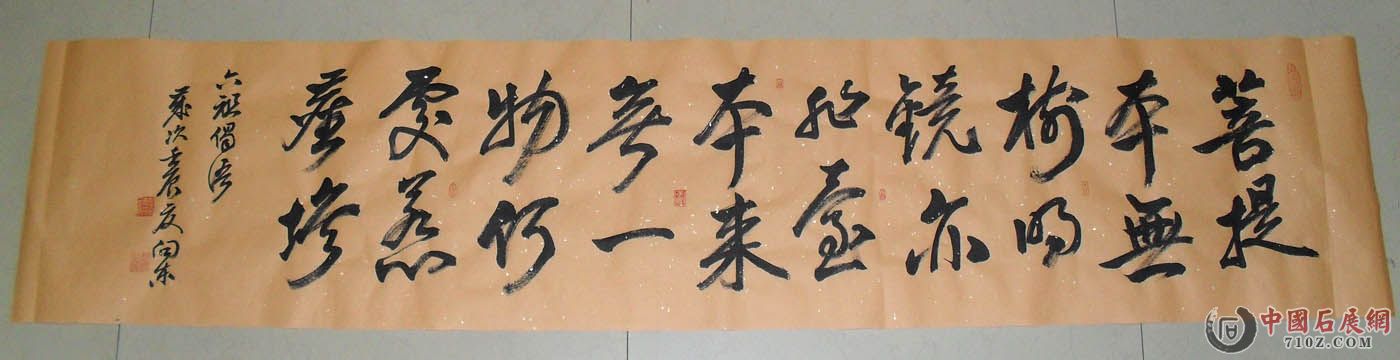 菩提
本無
樹明
鏡亦
非臺
本来
無一
物何
處惹
塵埃
六祖偈语
歲次壬辰夏向东
中國石展網
710Z.COM